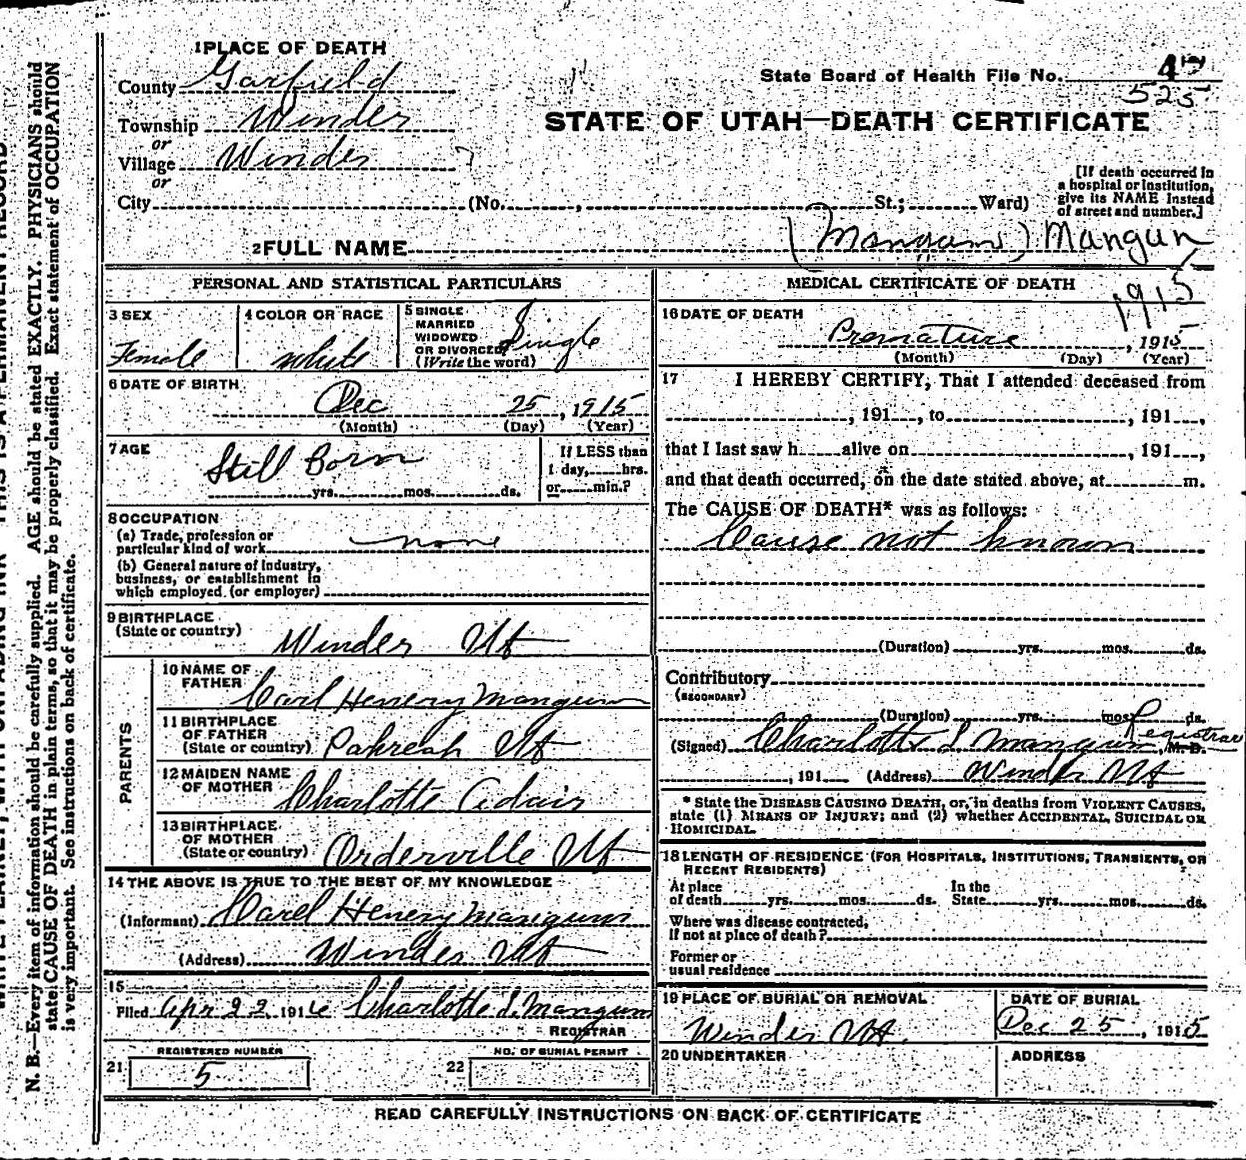 1 PLACE OF DEATH
County Garfield
Township Winder
or
Village Winder
or
City (No. , St.; Ward)
State Board of Health File No. 4
525
STATE OF UTAH—DEATH CERTIFICATE
[If death occurred in
a hospital or institution,
give its NAME instead
of street and number.]
2 FULL NAME (Mangum) Mangun
1915
PERSONAL AND STATISTICAL PARTICULARS
3 SEX
Female
4 COLOR OR RACE
White
5 SINGLE
MARRIED
WIDOWED
OR DIVORCED
(Write the word)
Single
6 DATE OF BIRTH
Dec 25, 1915
(Month) (Day) (Year)
7 AGE
Still Born
yrs. mos. ds.
If LESS than
1 day, hrs.
or min.?
8 OCCUPATION
(a) Trade, profession or
particular kind of work none
(b) General nature of industry,
business, or establishment in
which employed (or employer)
9 BIRTHPLACE
(State or country) Winder Ut
PARENTS
10 NAME OF
FATHER Carl Henery Mangum
11 BIRTHPLACE
OF FATHER
(State or country) Pahreah Ut
12 MAIDEN NAME
OF MOTHER Charlotte Adair
13 BIRTHPLACE
OF MOTHER
(State or country) Orderville Ut
14 THE ABOVE IS TRUE TO THE BEST OF MY KNOWLEDGE
(Informant) Carl Henery Mangum
(Address) Winder Ut
15
Filed Apr 22 1916 Charlotte I. Mangum
REGISTRAR
21 REGISTERED NUMBER
5
22 NO. OF BURIAL PERMIT
MEDICAL CERTIFICATE OF DEATH
16 DATE OF DEATH
Premature, 1915
(Month) (Day) (Year)
17 I HEREBY CERTIFY, That I attended deceased from
, 191 , to , 191 ,
that I last saw h alive on , 191 ,
and that death occurred, on the date stated above, at m.
The CAUSE OF DEATH* was as follows:
Cause not known
(Duration) yrs. mos. ds.
Contributory
(SECONDARY)
(Duration) yrs. mos. ds.
(Signed) Charlotte I Mangum, M. D. Registrar
, 191 (Address) Winder Ut
* State the DISEASE CAUSING DEATH, or, in deaths from VIOLENT CAUSES,
state (1) MEANS OF INJURY; and (2) whether ACCIDENTAL, SUICIDAL OR
HOMICIDAL.
18 LENGTH OF RESIDENCE (FOR HOSPITALS, INSTITUTIONS, TRANSIENTS, OR
RECENT RESIDENTS)
At place In the
of death yrs. mos. ds. State yrs. mos. ds.
Where was disease contracted,
if not at place of death?
Former or
usual residence
19 PLACE OF BURIAL OR REMOVAL
Winder Ut.
DATE OF BURIAL
Dec 25, 1915
20 UNDERTAKER
ADDRESS
READ CAREFULLY INSTRUCTIONS ON BACK OF CERTIFICATE
N. B.—Every item of information should be carefully supplied. AGE should be stated EXACTLY. PHYSICIANS should
state CAUSE OF DEATH in plain terms, so that it may be properly classified. Exact statement of OCCUPATION
is very important. See instructions on back of certificate.